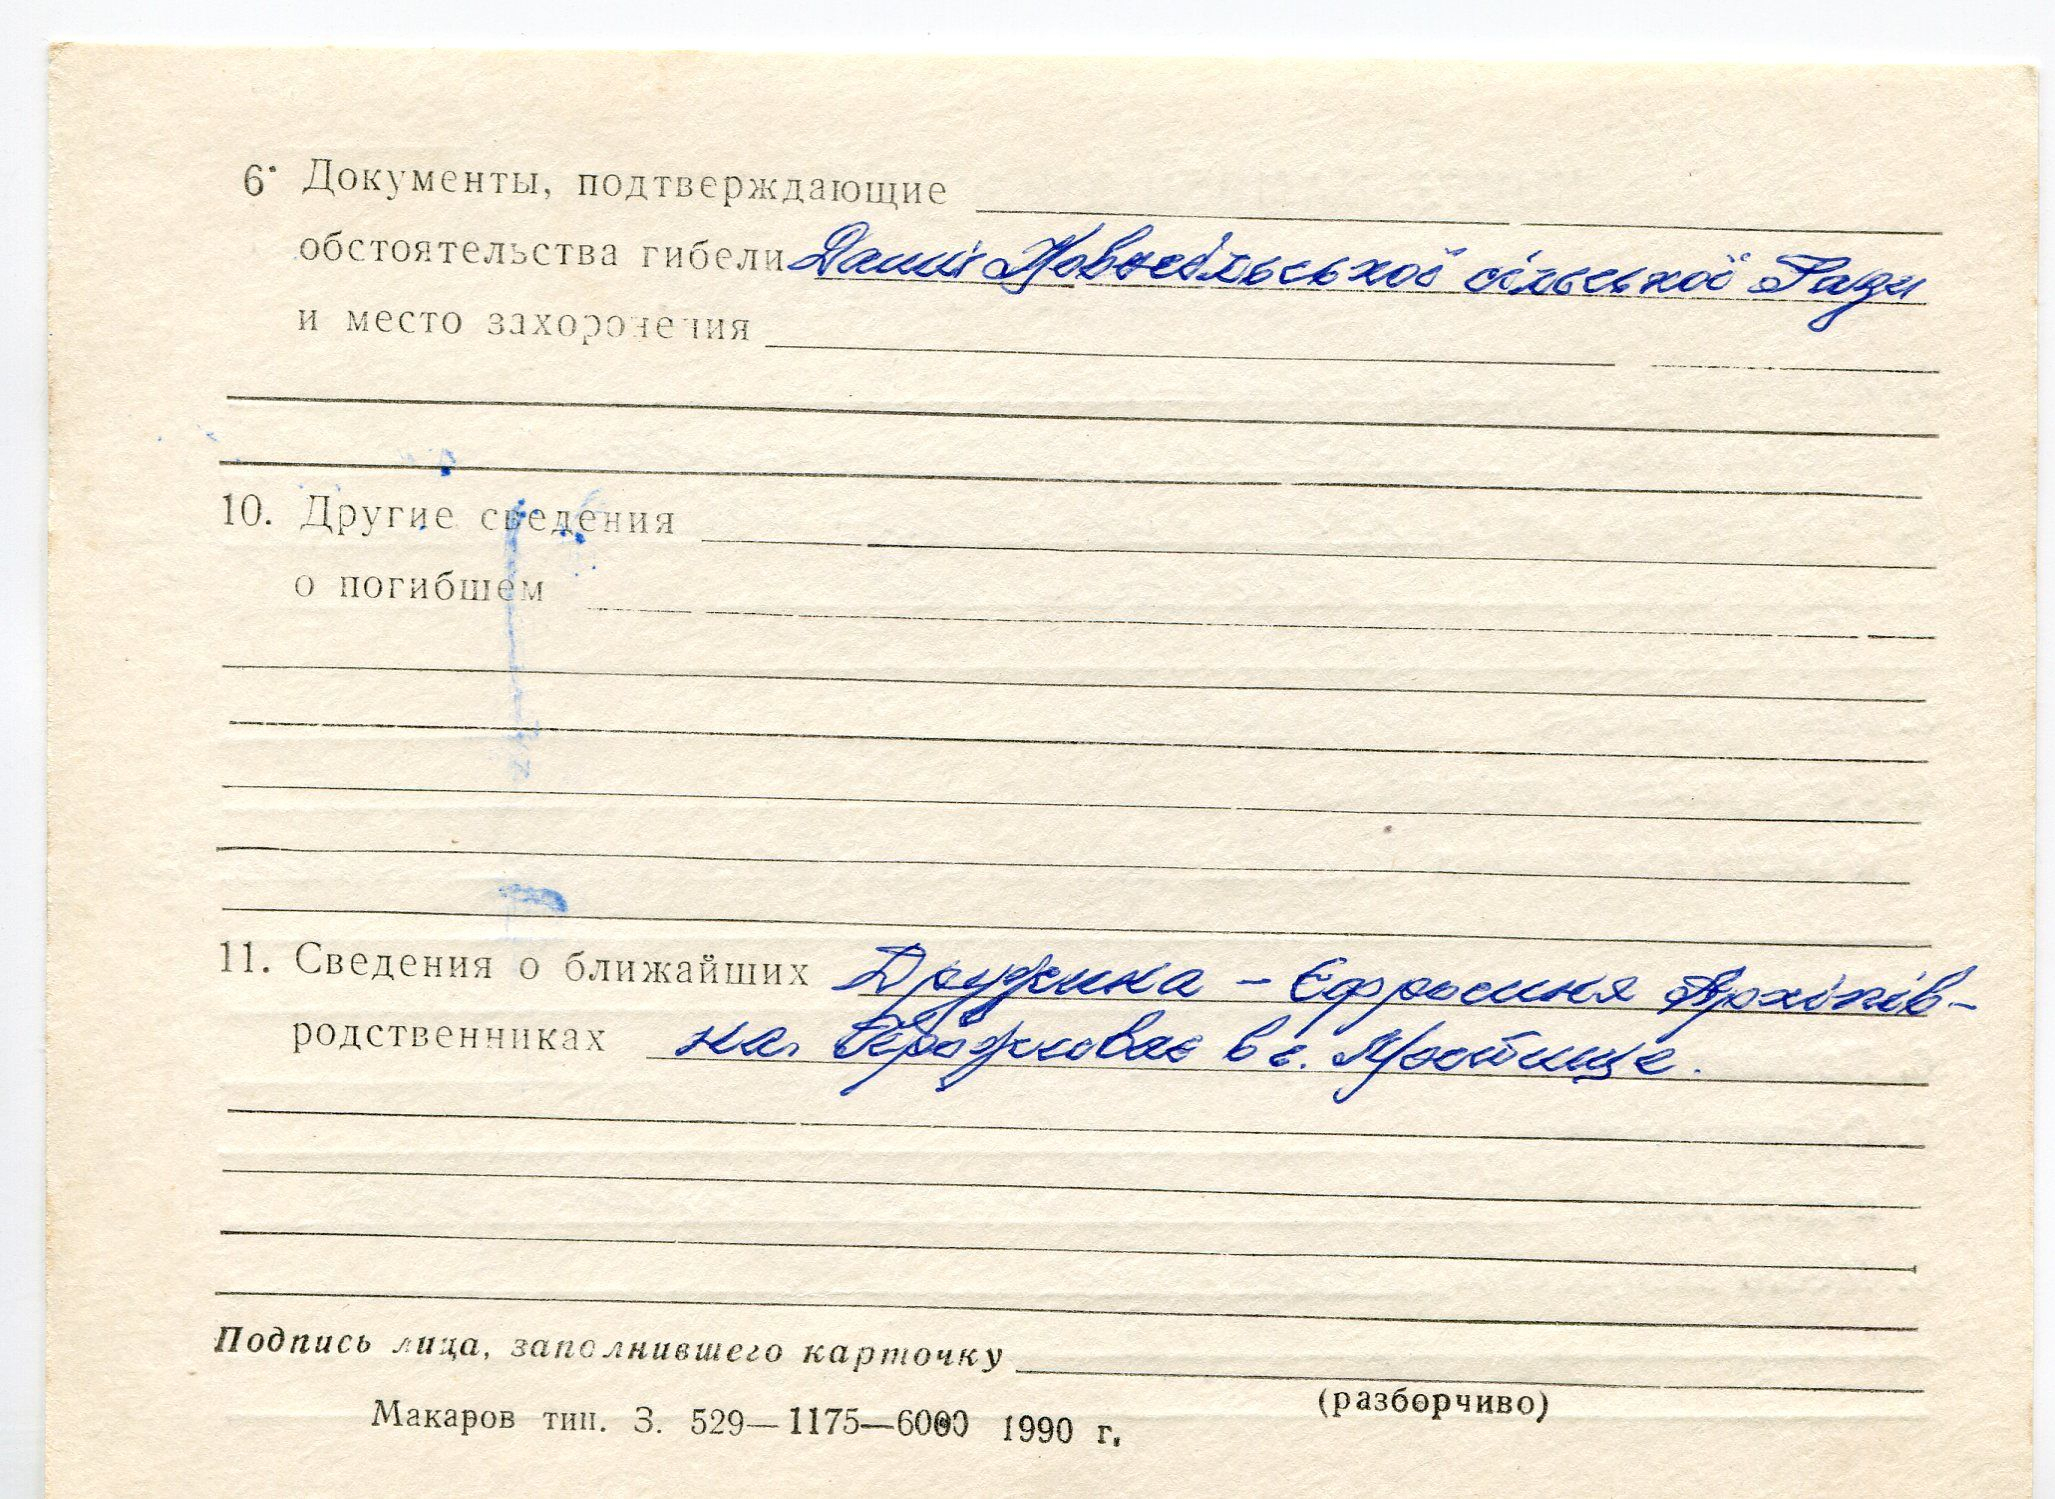 6. Документы, подтверждающие
обстоятельства гибели Данні Новосільської сільської Ради
и место захоронения
10. Другие сведения
о погибшем
11. Сведения о ближайших Дружина – Єфросиня Архипів-
родственниках на. Проживає в с. Мостище.
Подпись лица, заполнившего карточку
(разборчиво)
Макаров тип. З. 529—1175—6000 1990 г.